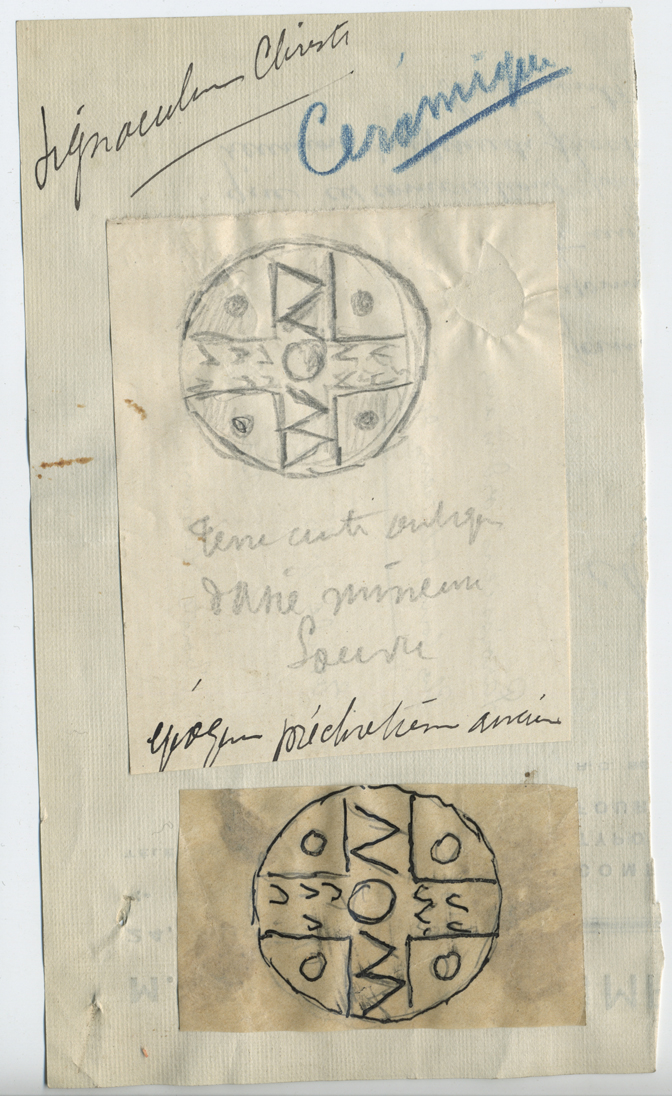 Signaculum Christi
Céramique
Terre cuite antique
d'Asie mineure
Louvre
époque préchrétienne ancienne